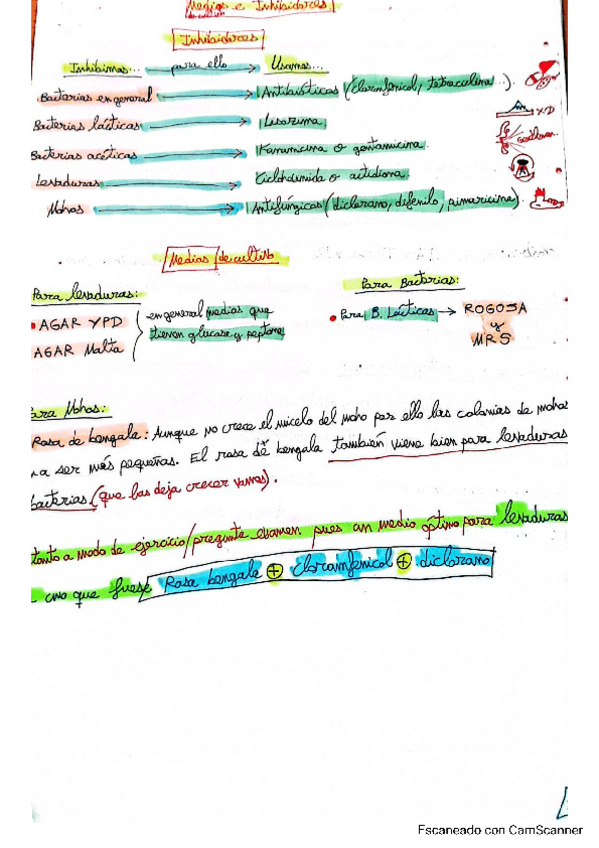 Medios e Inhibidores
de cultivo
Inhibidores
Inhibimos... para ello Usamos...
Bacterias en general Antibióticos (cloramfenicol, tetraciclina...).
Bacterias lácticas Lisozima.
Bacterias acéticas Kanamicina o gentamicina.
Levaduras Cicloheximida o actidiona
Mohos Antifúngicos (diclorano, difenilo, pimaricina).
YPD
Medios de cultivo
Para levaduras: Para Bacterias:
AGAR YPD en general medios que Para B. Lácticas → ROGOSA
tienen glucosa y peptona y
AGAR Malta MRS
ara Mohos:
Rosa de bengala: Aunque no crece el micelo del moho por ello las colonias de mohos
a ser más pequeñas. El rosa de bengala también viene bien para levaduras
bacterias (que las deja crecer vamos).
tanto a modo de ejercicio/pregunta examen pues un medio óptimo para levaduras
uno que fuese Rosa bengala + Cloramfenicol + diclorano
Escaneado con CamScanner